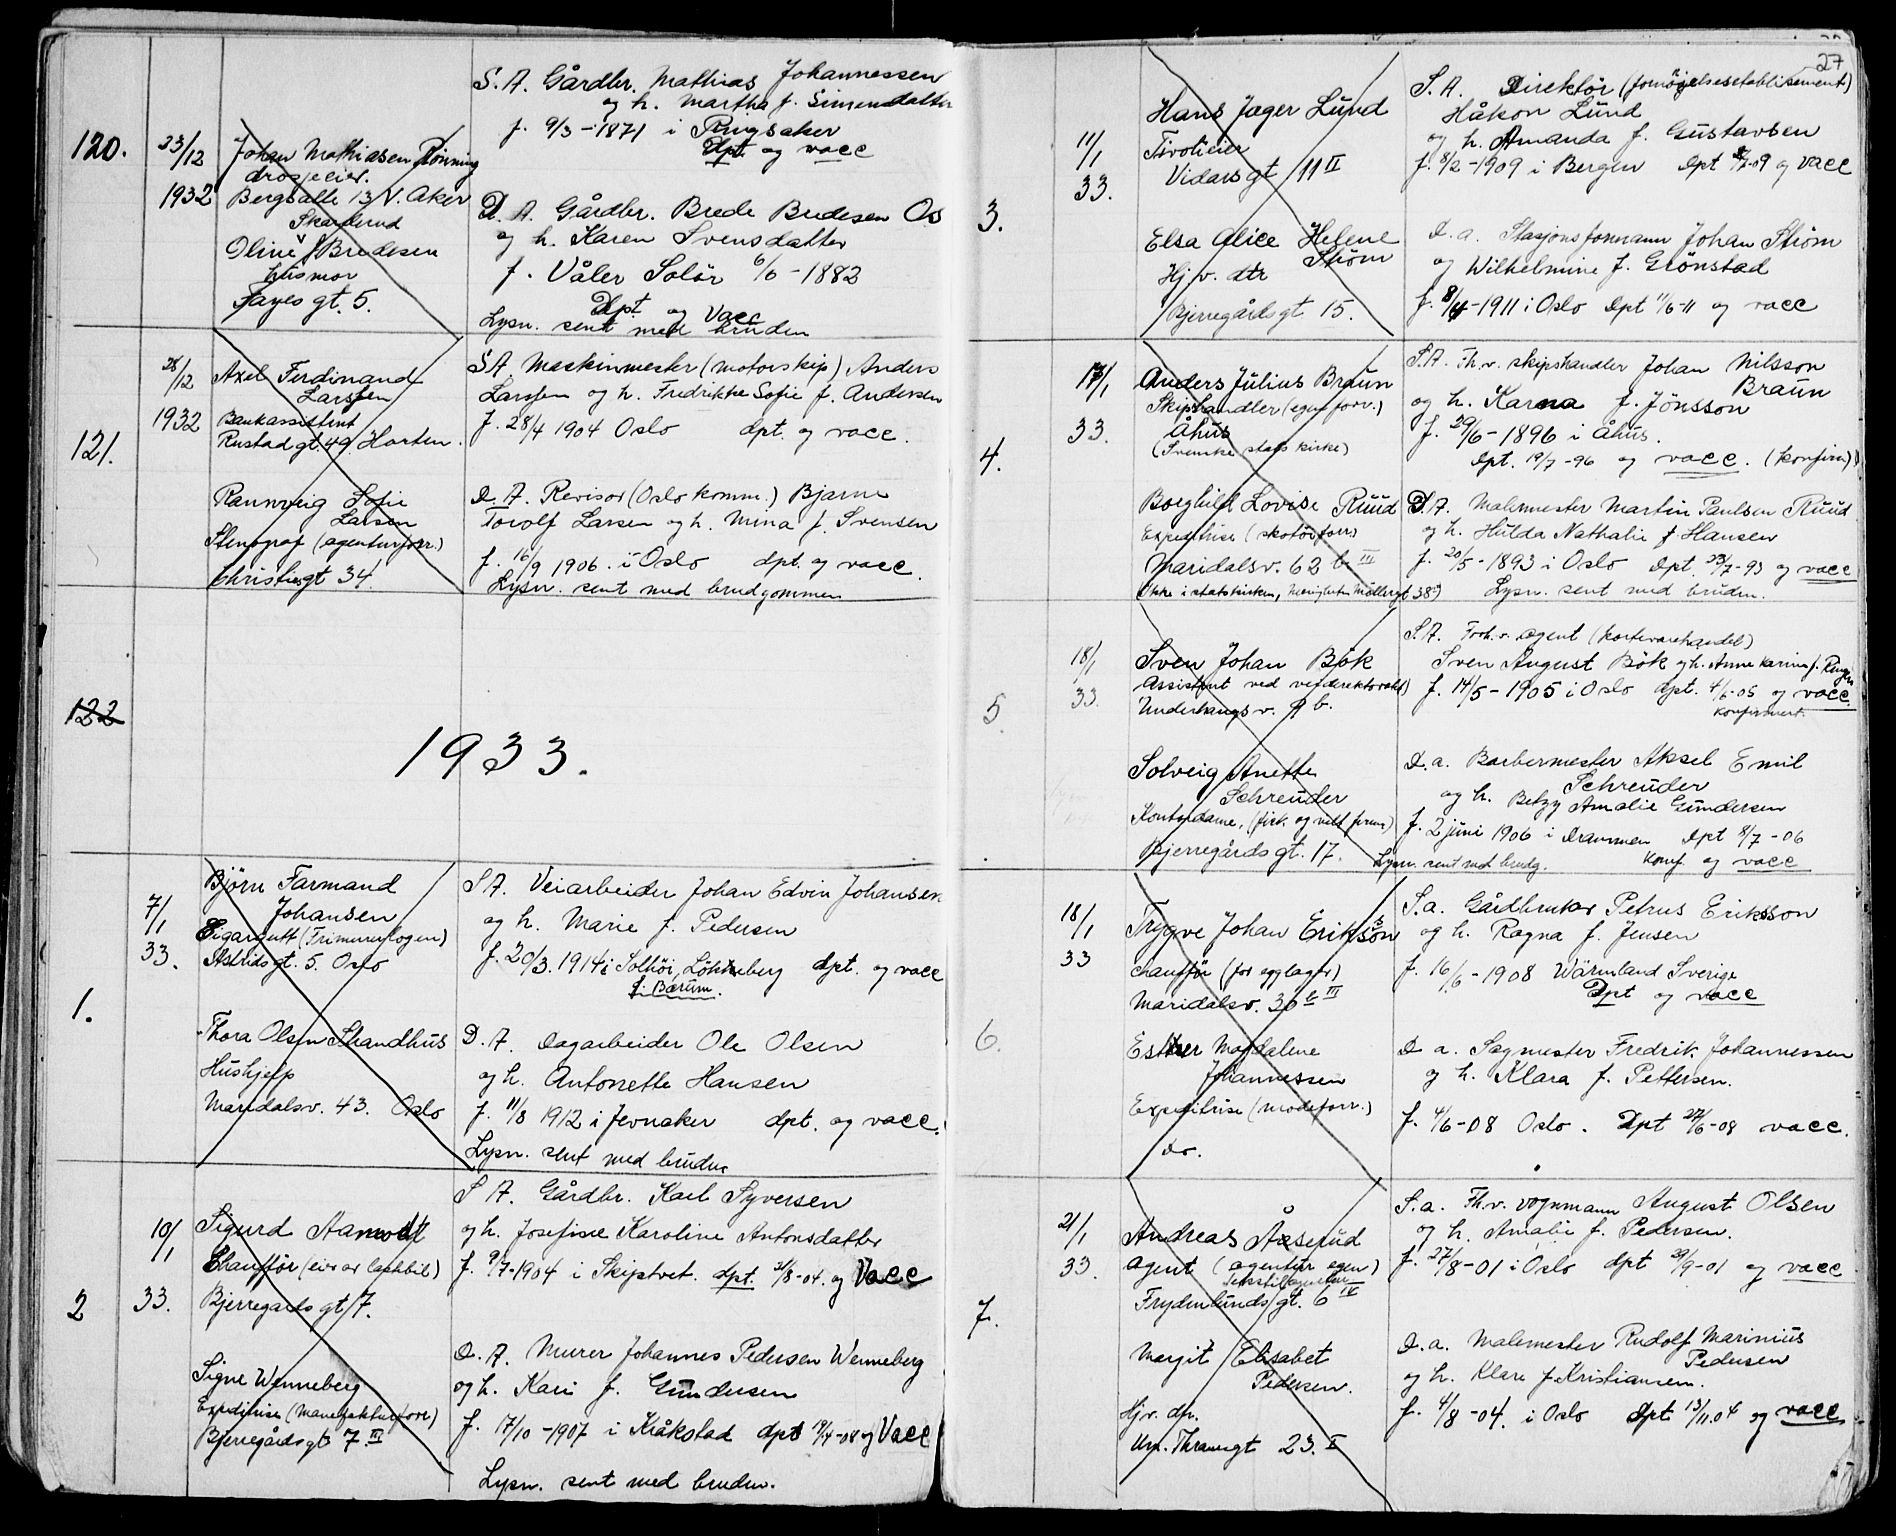 120.
23/12
1932
Johan Mathiasen Rønning
drosjeeier.
Bergsalle 13 V. Aker
Skarderud
Oline f Bredesen
husmor
Fayes gt. 5.
S. A. Gårdbr. Mathias Johannessen
og h. Martha f. Simensdatter
f. 9/3-1871 i Ringsaker
Dpt. og vacc
D. A. Gårdbr. Brede Bredesen Os
og h. Karen Svensdatter
f. Våler Solör 6/6-1882
Dpt. og Vacc
Lysn. sent med bruden
121.
28/12
1932
Axel Ferdinand
Larssen
Bankassistent
Rustad gt. 49 Horten.
Rannveig Sofie
Larsen
Stenograf (agenturforr.)
Christiesgt 34.
S A. Maskinmester (motorskip) Anders
Larssen og h. Fredrikke Sofie f. Andersen
f. 28/4 1904 Oslo dpt. og vacc.
D. A. Revisor (Oslo komm.) Bjarne
Torolf Larsen og h. Mina f. Svensen
f. 16/9 1906. i Oslo dpt. og vacc.
Lysn. sent med brudgommen
122
1933.
1.
7/1
33.
Bjørn Farmand
Johansen
Sigargutt (Frimurerlogen)
Astrids gt. 5. Oslo
Thora Olsen Strandhus
Hushjelp
Maridalsv. 43. Oslo
S A. Veiarbeider Johan Edvin Johansen
og h. Marie f. Pedersen
f. 20/3. 1914 i Solhöi, Lökkeberg dpt. og vacc
i Bærum.
D. A. Dagarbeider Ole Olsen
og h. Antonette Hansen
f. 11/8 1912 i Jevnaker dpt. og vacc.
Lysn. sent med bruden
2
10/1
33.
Sigurd Aamodt
Chauffør (eier av lastebil)
Bjerregårds gt. 7.
Signe Wenneberg
Expeditrise (Manufakturforr.)
Bjerregårdsgt 7 III
S A. Gårdbr. Karl Syversen
og h. Josefine Karoline Antonsdatter
f. 9/7-1904 i Skiptvet. dpt. 21/8-04. og Vacc
D. A. Murer Johannes Pedersen Wenneberg
og h. Kari f. Gundersen
f. 17/10-1907 i Kråkstad dpt 19/4-08 og Vacc
Lysn. sent med bruden.
27
3.
11/1
33.
Hans Jæger Lund
Tivolieier
Vidarsgt 11 II
Elsa Alice Helene
Strøm
Hj v. dtr
Bjerregårdsgt 15.
S. A. Direktør (fornöielsesetablisement)
Håkon Lund
og h. Amanda f. Gustavsen
f. 8/2-1909 i Bergen Dpt -09 og vacc
D. a. Stasjonsformann Johan Strøm
og Wilhelmine f. Grönstad
f. 8/4-1911 i Oslo Dpt 11/6-11 og vacc
4.
17/1
33.
Anders Julius Braun
Skipshandler (egen forr.)
Åhus
(Svenske stats kirke)
Borghild Lovise Ruud
Expeditrise (skotöiforr)
Maridalsv. 62 b III
(Ikke i statskirken, Menigheten Möllergt 38)
S. A. Fh.v. skipshandler Johan Nilsson
Braun
og h. Karna f. Jönsson
f. 29/6-1896 i Åhus.
Dpt. 19/7-96 og vacc. (konfirm)
D. A. Malermester Martin Paulsen Ruud
og h. Hulda Nathalie f Hansen
f. 20/5-1893 i Oslo Dpt. 23/7-93 og vacc
Lysn. sent med bruden.
5
18/1
33.
Sven Johan Bök
Assistent ved veidirektoratet
Underhaugsv. 9 b.
Solveig Anette
Schreuder
Kontordame, (fisk. og vilt firma)
Bjerregårds gt. 17.
S. A. Forh.v. agent (kortevarehandel)
Sven August Bök og h. Anne Karine f. Ringen
f. 14/5-1905 i Oslo dpt. 4/6-05 og vacc.
Konfirmert.
D. a. Barbermester Aksel Emil
Schreuder
og h. Betzy Amalie Gundersen
f. 2 juni 1906 i Drammen Dpt 8/7-06
Lysn. sent med brudg. Konf og vacc
6.
18/1
33
Trygve Johan Eriksson
chauffør (for egglager)
Maridalsv. 30 b III
Esther Magdalene
Johannessen
Expeditrise (moteforr.)
do.
S. a. Gårdbruker Petrus Eriksson
og h. Ragna f. Jensen
f. 16/6-1908 Wärmland Sverige
Dpt og vacc
D a. Sagmester Fredrik Johannessen
og h. Klara f. Pettersen.
f. 4/6-08 Oslo. Dpt 28/6-08 vacc.
7.
21/1
33.
Andreas Åserud
agent (agentur egen)
Tekstilagentur
Frydenlunds gt. 6 IV
Margit Elisabet
Pedersen.
Hj v. dtr.
Mrc. Thranesgt 23. I
S. a. Fh.v. vognmann August Olsen
og h. Amalie f. Pedersen.
f. 27/8-01 i Oslo dpt 29/9-01 og vacc
D. a. Malemester Rudolf Marinius
Pedersen
og h. Klara f. Kristiansen.
f. 4/8-04. i Oslo Dpt 13/11.04 og vacc